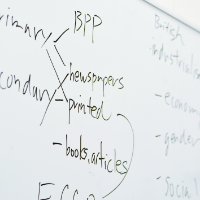 BPP
rimary
newspapers
condary
- printed
- books, articles
British
industrialis
- econom
- gender
- Social